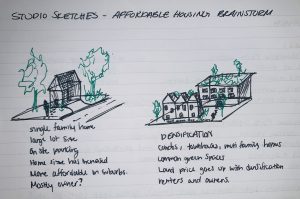 STUDIO SKETCHES - AFFORDABLE HOUSING BRAINSTORM
single family home
large lot size
On site parking
Home size has increased
More affordable in suburbs.
Mostly owner?
DENSIFICATION
condos, townhouses, multi family homes
common green spaces
Land price goes up with densification
renters and owners.